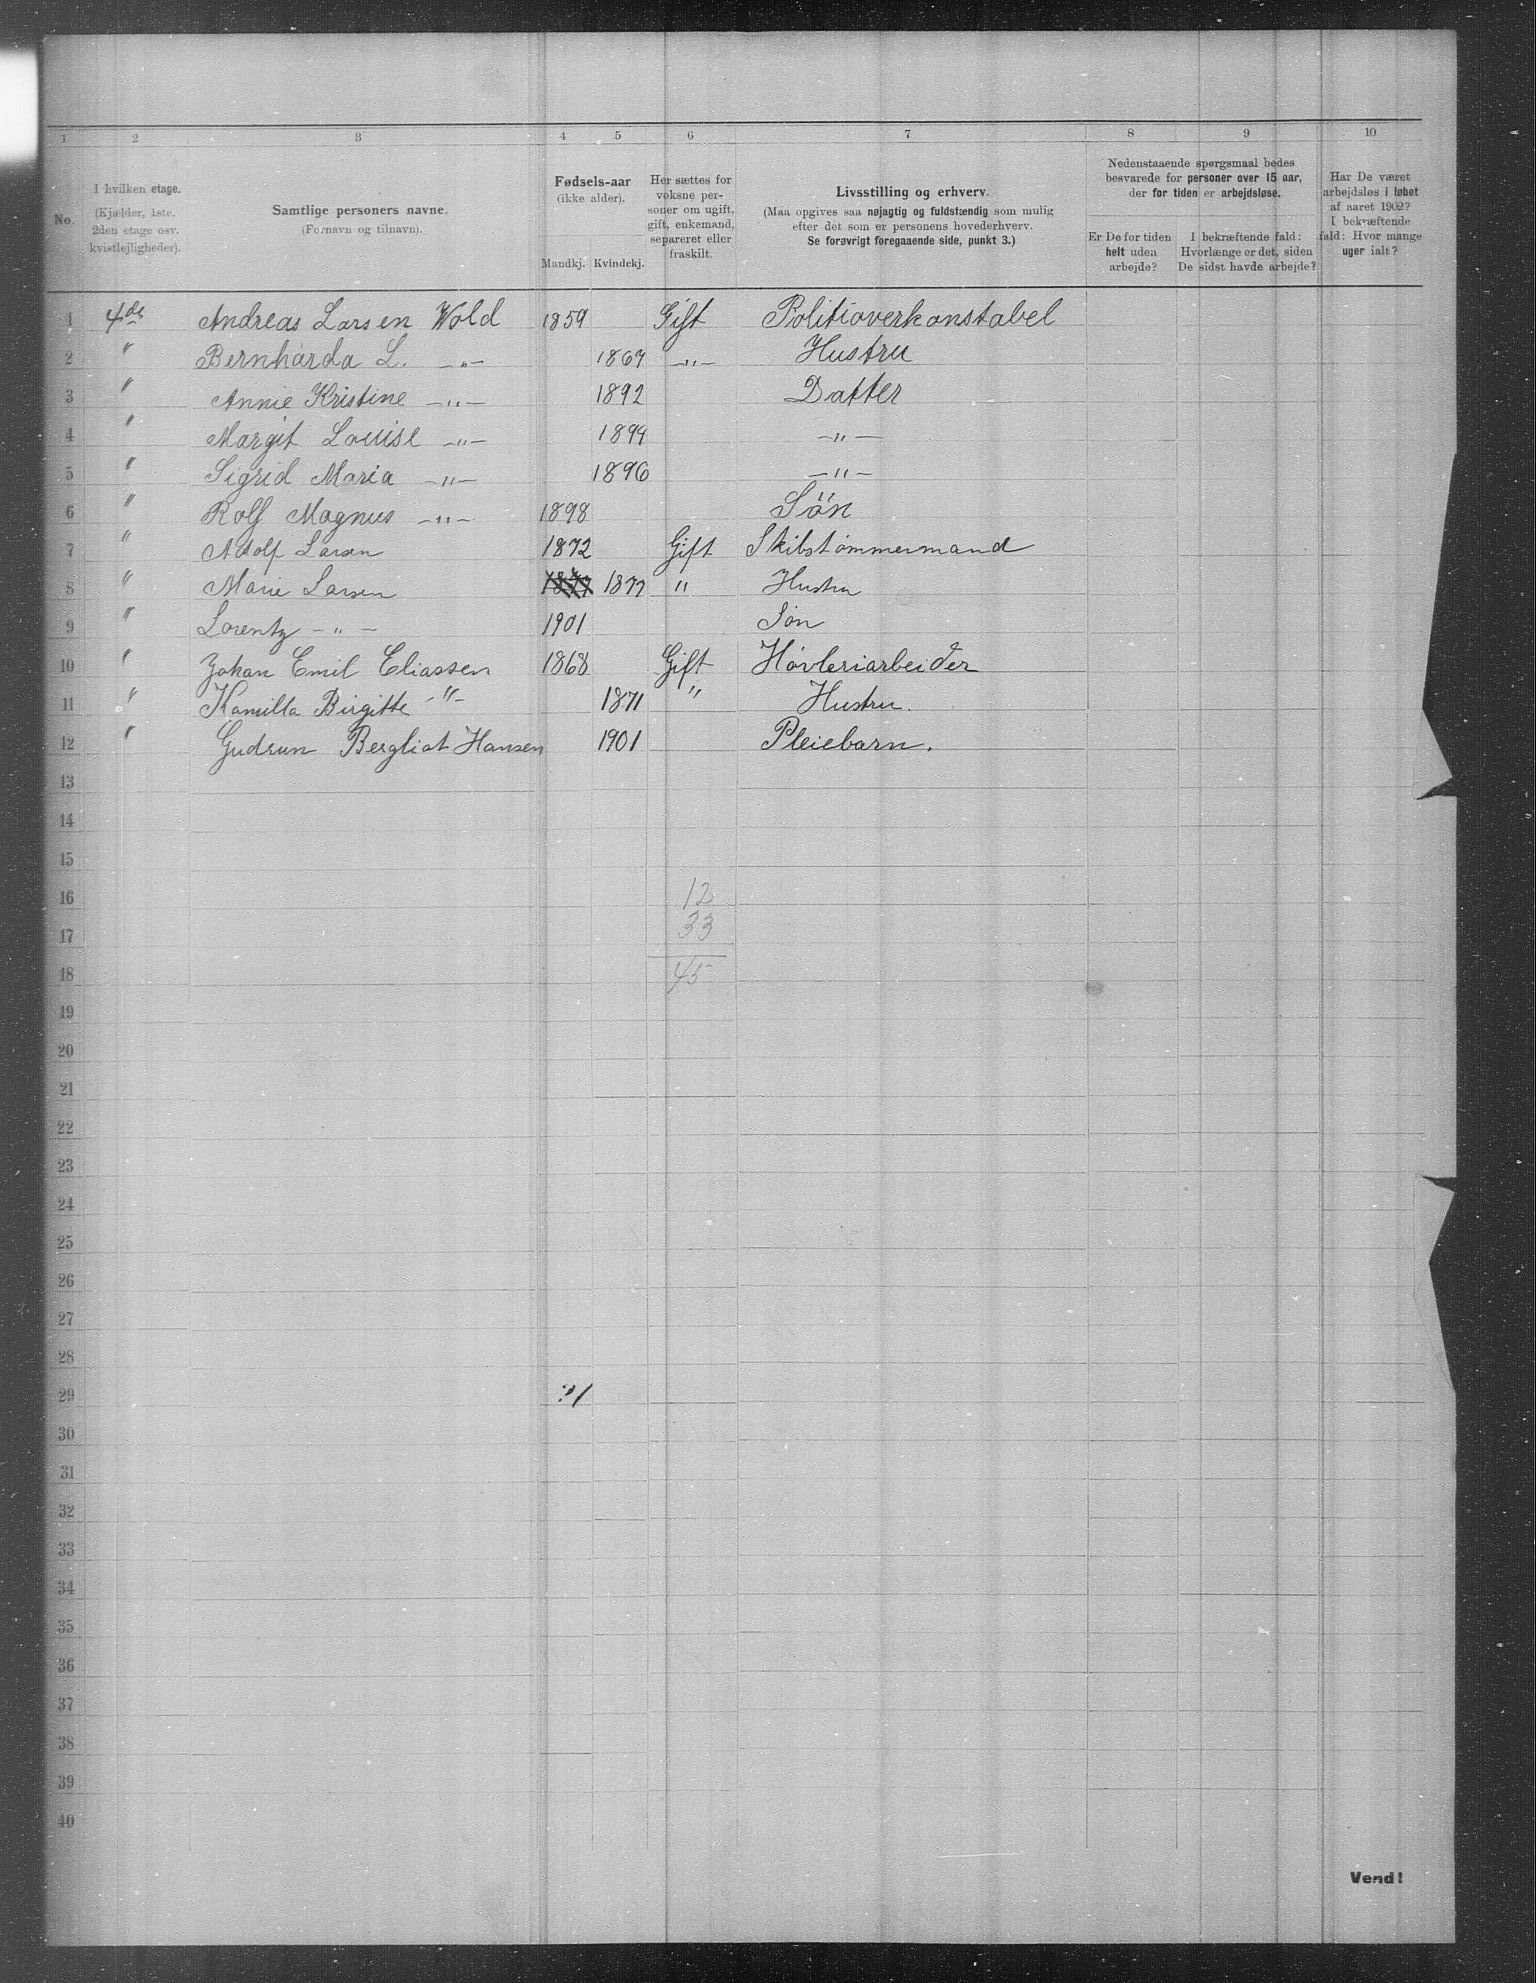 1 2 3 4 5 6 7 8 9 10
No.
I hvilken etage.
(Kjælder, 1ste.
2den etage osv.
kvistlejligheder).
Samtlige personers navne.
(Fornavn og tilnavn).
Fødsels-aar
(ikke alder).
Mandkj. Kvindekj.
Her sættes for
voksne per-
soner om ugift,
gift, enkemand,
separeret eller
fraskilt.
Livsstilling og erhverv.
(Maa opgives saa nøjagtig og fuldstændig som mulig
efter det som er personens hovederhverv.
Se forøvrigt foregaaende side, punkt 3.)
Nedenstaaende spørgsmaal bedes
besvarede for personer over 15 aar,
der for tiden er arbejdsløse.
Er De for tiden
helt uden
arbejde?
I bekræftende fald:
Hvorlænge er det, siden
De sidst havde arbejde?
Har De været
arbejdsløs i løbet
af aaret 1902?
I bekræftende
fald: Hvor mange
uger ialt?
1 4de Andreas Larsen Wold 1859 Gift Politioverkonstabel
2 " Bernharda L. -"- 1867 -"- Hustru
3 " Annie Kristine -"- 1892 Datter
4 " Margit Louise -"- 1894 -"-
5 " Sigrid Maria -"- 1896 -"-
6 " Rolf Magnus -"- 1898 Sön
7 " Adolf Larsen 1872 Gift Skibstømmermand
8 " Marie Larsen 1877 1877 " Hustru
9 " Lorentz -"- 1901 Søn
10 " Johan Emil Eliassen 1868 Gift Høvleriarbeider
11 " Kamilla Birgitte -"- 1871 " Hustru.
12 " Gudrun Bergliot Hansen 1901 Pleiebarn.
13
14
15
16 12
17 33
18 45
19
20
21
22
23
24
25
26
27
28
29 21
30
31
32
33
34
35
36
37
38
39
40
Vend!